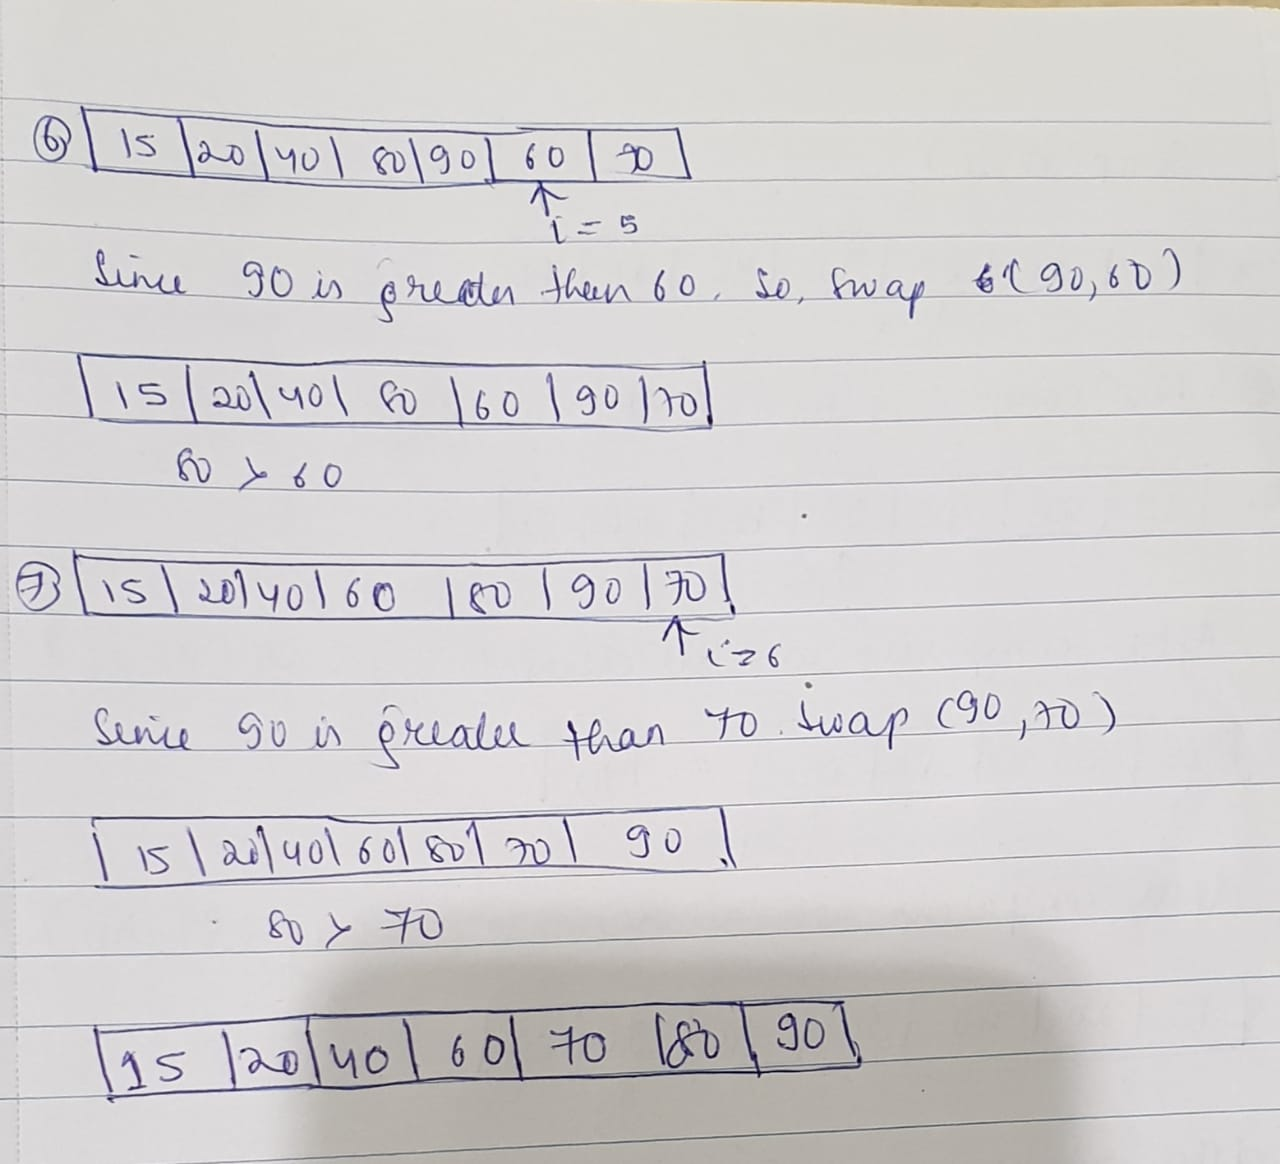 ⑥ | 15 | 20 | 40 | 80 | 90 | 60 | 70 |
↑
i = 5
Since 90 is greater then 60. So, swap (90,60)
| 15 | 20 | 40 | 80 | 60 | 90 | 70 |
80 > 60
⑦ | 15 | 20 | 40 | 60 | 80 | 90 | 70 |
↑ i=6
Since 90 is greater than 70. Swap (90,70)
| 15 | 20 | 40 | 60 | 80 | 70 | 90 |
80 > 70
| 15 | 20 | 40 | 60 | 70 | 80 | 90 |